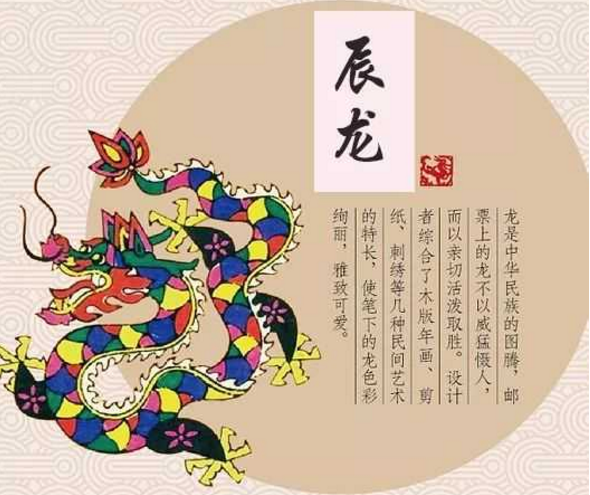 辰龙
龙是中华民族的图腾，邮
票上的龙不以威猛慑人，
而以亲切活泼取胜。设计
者综合了木版年画、剪
纸、刺绣等几种民间艺术
的特长，使笔下的龙色彩
绚丽，雅致可爱。